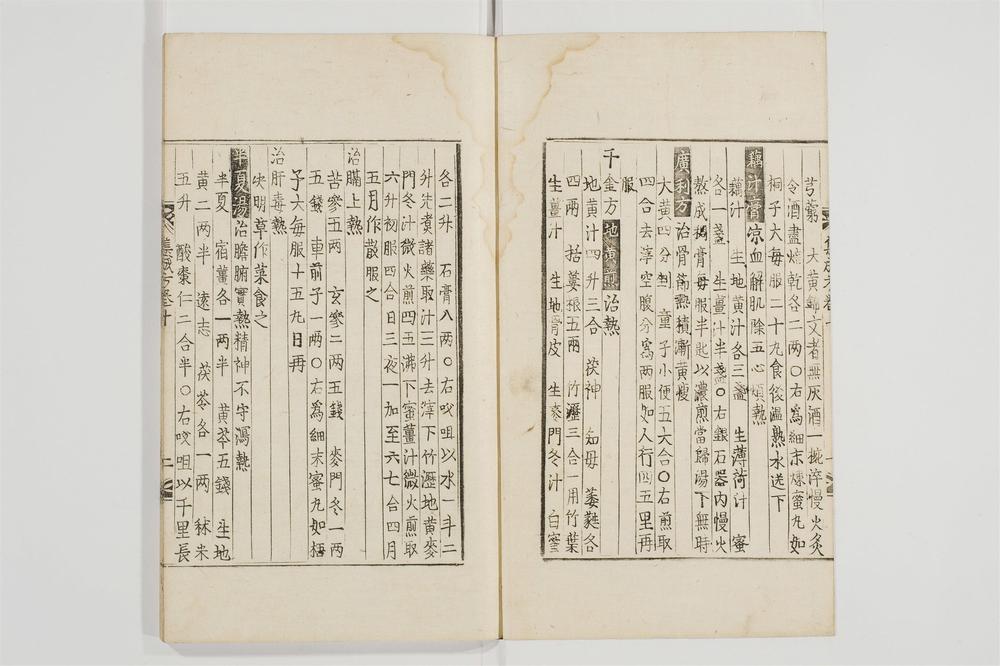 芎藭 大黃錦文者無灰酒一椀淬慢火炙
令酒盡焙乾各二兩○右爲細末煉蜜丸如
桐子大每服二十九食後溫熟水送下
藕汁膏凉血解肌除五心煩熱
藕汁 生地黃汁各三盞 生薄荷汁 蜜
各一盞 生薑汁半盞○右銀石器內慢火
熬成稠膏每服半匙以濃煎當歸湯下無時
廣利方治骨節熱積漸黃瘦
大黃四分 童子小便五六合○右煎取
四合去滓空腹分爲兩服如人行四五里再
服
千金方地黃煎治熱
地黃汁四升三合 茯神 知母 萎蕤各
四兩 括蔞根五兩 竹瀝三合一用竹葉
生薑汁 生地骨皮 生麥門冬汁 白蜜
各二升 石膏八兩○右㕮咀以水一斗二
升先煮諸藥取汁三升去滓下竹瀝地黃麥
門冬汁微火煎四五沸下蜜薑汁微火煎取
六升初服四合日三夜一加至六七合四月
五月作散服之
治膈上熱
苦參五兩 玄參二兩五錢 麥門冬一兩
五錢 車前子一兩○右爲細末蜜丸如梧
子大每服十五九日再
治肝毒熱
决明草作菜食之
半夏湯治膽腑實熱精神不守瀉熱
半夏 宿薑各一兩半 黃芩五錢 生地
黃二兩半 遠志 茯苓各一兩 秫米
五升 酸棗仁二合半○右㕮咀以千里長